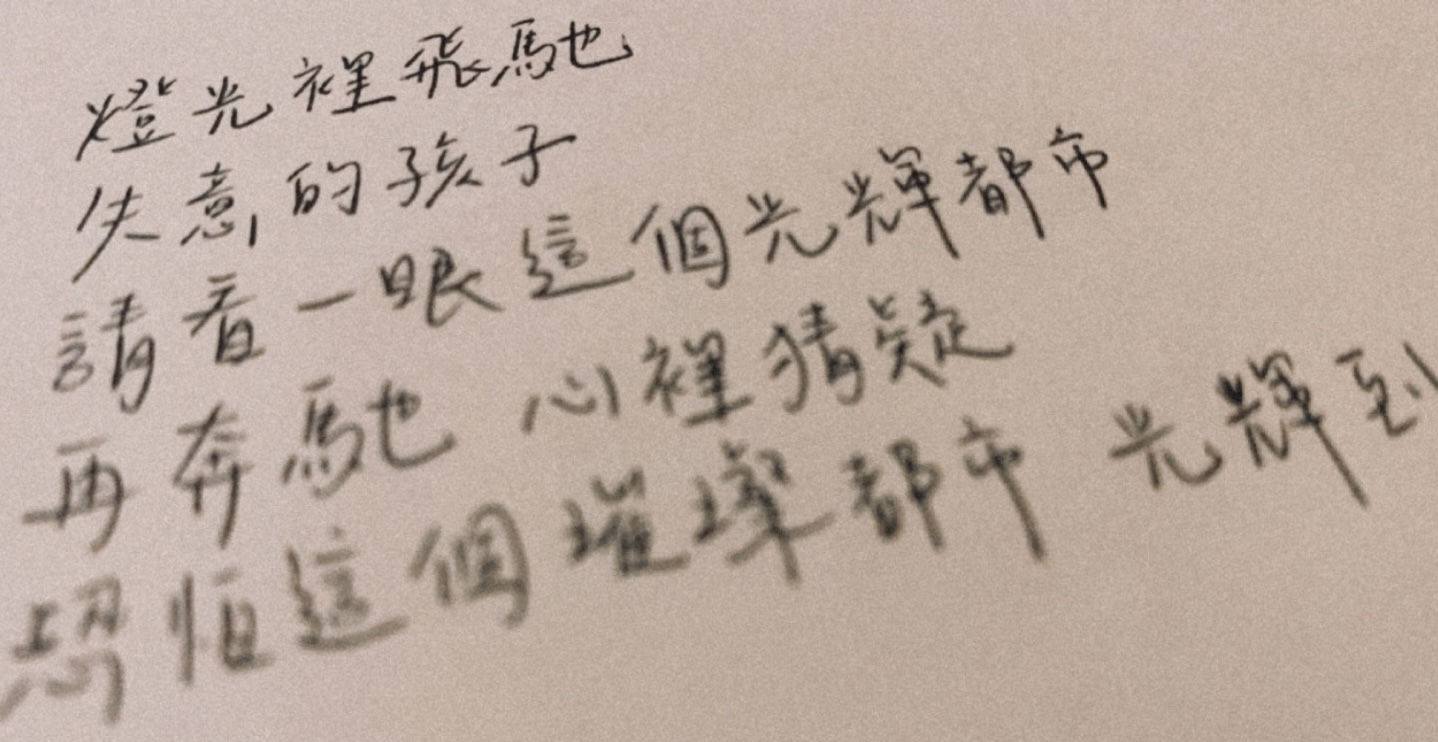 燈光裡飛馳
失意的孩子
請看一眼這個光輝都市
再奔馳 心裡猜疑
恐怕這個璀璨都市 光輝到